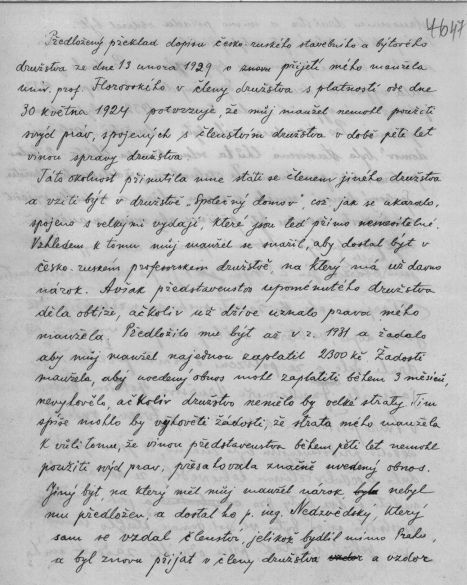 4647
Předložený překlad dopisu česko-ruského stavebního a bytového
družstva ze dne 13 února 1929 o znovu přijetí mého manžela
univ. prof. Florovského v členy družstva s platností ode dne
30 května 1924 potvrzuje, že můj manžel nemohl použíti
svých prav, spojených s členstvím družstva v době pěti let
vinou správy družstva
Tato okolnost přinutila mne státi se členem jiného družstva
a vzíti být v družstvě „Společný domov", což, jak se ukazalo,
spojeno s velkymi vydaji, které jsou teď přímo nesnesitelné.
Vzhledem k tomu můj manžel se snažil, aby dostal být v
česko-ruském profesorském družstvě, na který má už davno
nárok. Avšak představenstvo upomenutého družstva
děla obtiže, ačkoliv už dříve uznalo prava mého
manžela. Předložilo mu být až v r. 1931 a žadalo
aby můj manžel najednou zaplatil 2300 Kč Žadosti
manžela, aby uvedený obnos mohl zaplatiti během 3 měsíců,
nevyhovělo, ačkoliv družstvo nemělo by velké straty. Tim
spíše mohlo by vyhověti žadosti, že strata mého manžela
k vůli tomu, že vinou představenstva během pěti let nemohl
použíti svých prav, přesahovala značně uvedený obnos.
Jiný být, na který měl můj manžel nárok nebyl
mu předložen, a dostal ho p. ing. Nedzvědský, který
sam se vzdal členství, jelikož bydlil mimo Prahu,
a byl znovu přijat v členy družstva a vzdor